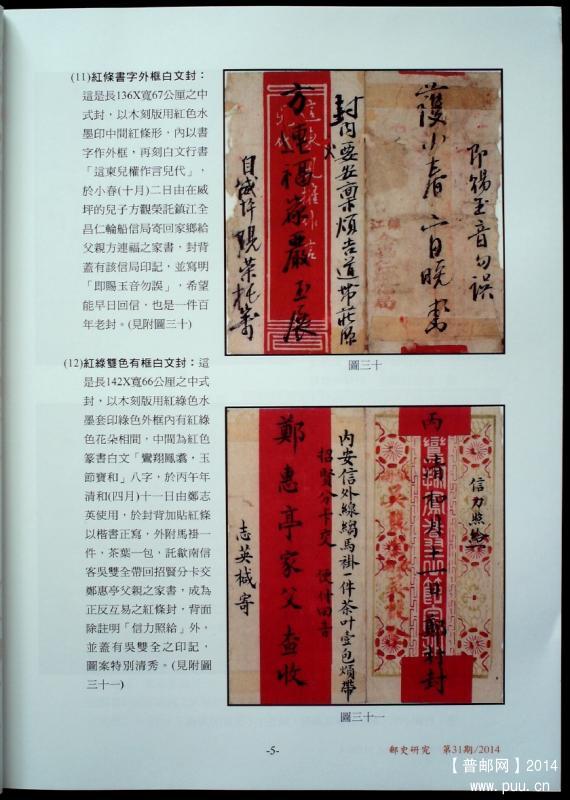 (11)紅條書字外框白文封：
這是長136X寬67公厘之中
式封，以木刻版用紅色水
墨印中間紅條形，內以書
字作外框，再刻白文行書
「這東兒權作言兒代」，
於小春(十月)二日由在威
坪的兒子方觀榮託鎮江全
昌仁輪船信局寄回家鄉給
父親方連福之家書，封背
蓋有該信局印記，並寫明
「即賜玉音勿誤」，希望
能早日回信，也是一件百
年老封。(見附圖三十)
即錫玉音勿誤
護小春二日晚
封內要並稟煩吉道帶莊源
方連福嚴玉展
自威坪覌荣托寄
圖三十
(12)紅綠雙色有框白文封：這
是長142X寬66公厘之中式
封，以木刻版用紅綠色水
墨套印綠色外框內有紅綠
色花朵相間，中間為紅色
篆書白文「鸞翔鳳翥，玉
節寶和」八字，於丙午年
清和(四月)十一日由鄭志
英使用，於封背加貼紅條
以楷書正寫，外附馬褂一
件，茶葉一包，託歙南信
客吳雙全帶回招賢分卡交
鄭惠亭父之家書，成為
正反互易之紅條封，背面
除註明「信力照給」外，
並蓋有吳雙全之印記，
圖案特別清秀。(見附圖
三十一)
信力照給
丙
清和
封
內安信外線縐馬褂一件茶叶壹包煩帶
招賢分卡交 便付回音
鄭惠亭家父查收
志英椷寄
圖三十一
-5-
郵史研究 第31期/2014
【普邮网】2014
www.puu.cn